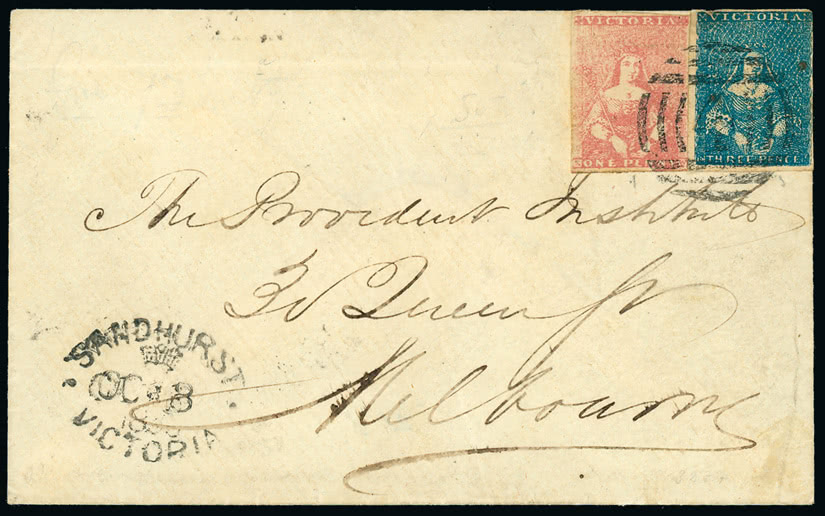 VICTORIA VICTORIA
ONE THREE PENCE
The Provident Institute
30 Queen St
Melbourne
SANDHURST
OC 8
VICTORIA